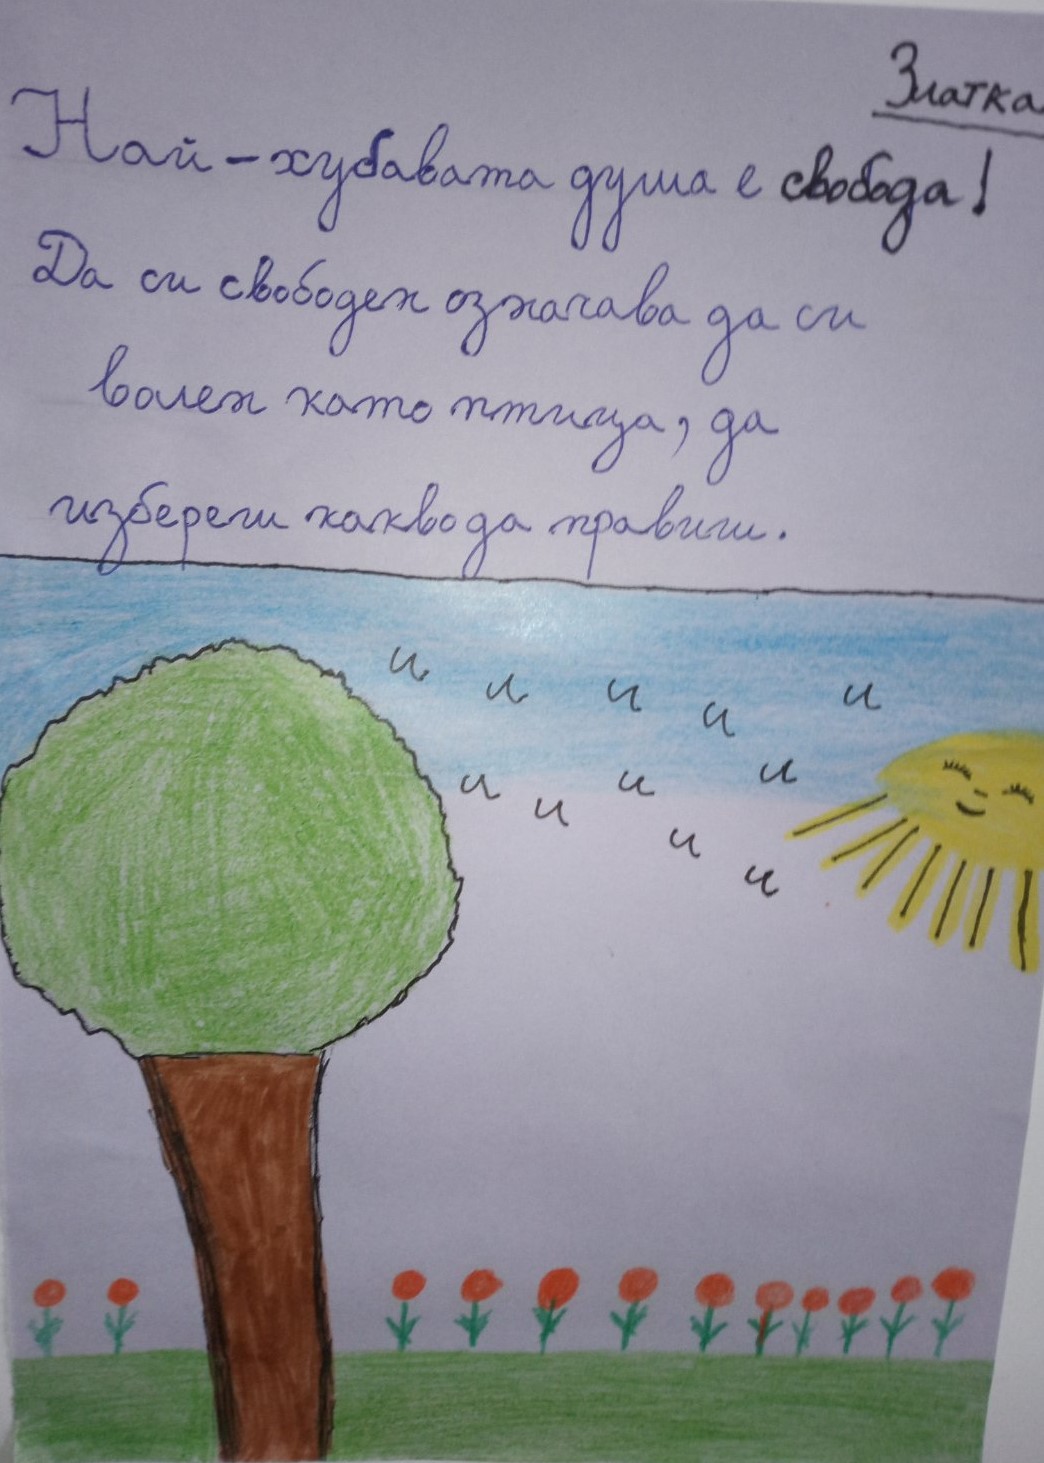 Златка
Най-хубавата душа е свобода!
Да си свободен означава да си
волен като птица, да
избереш какво да правиш.